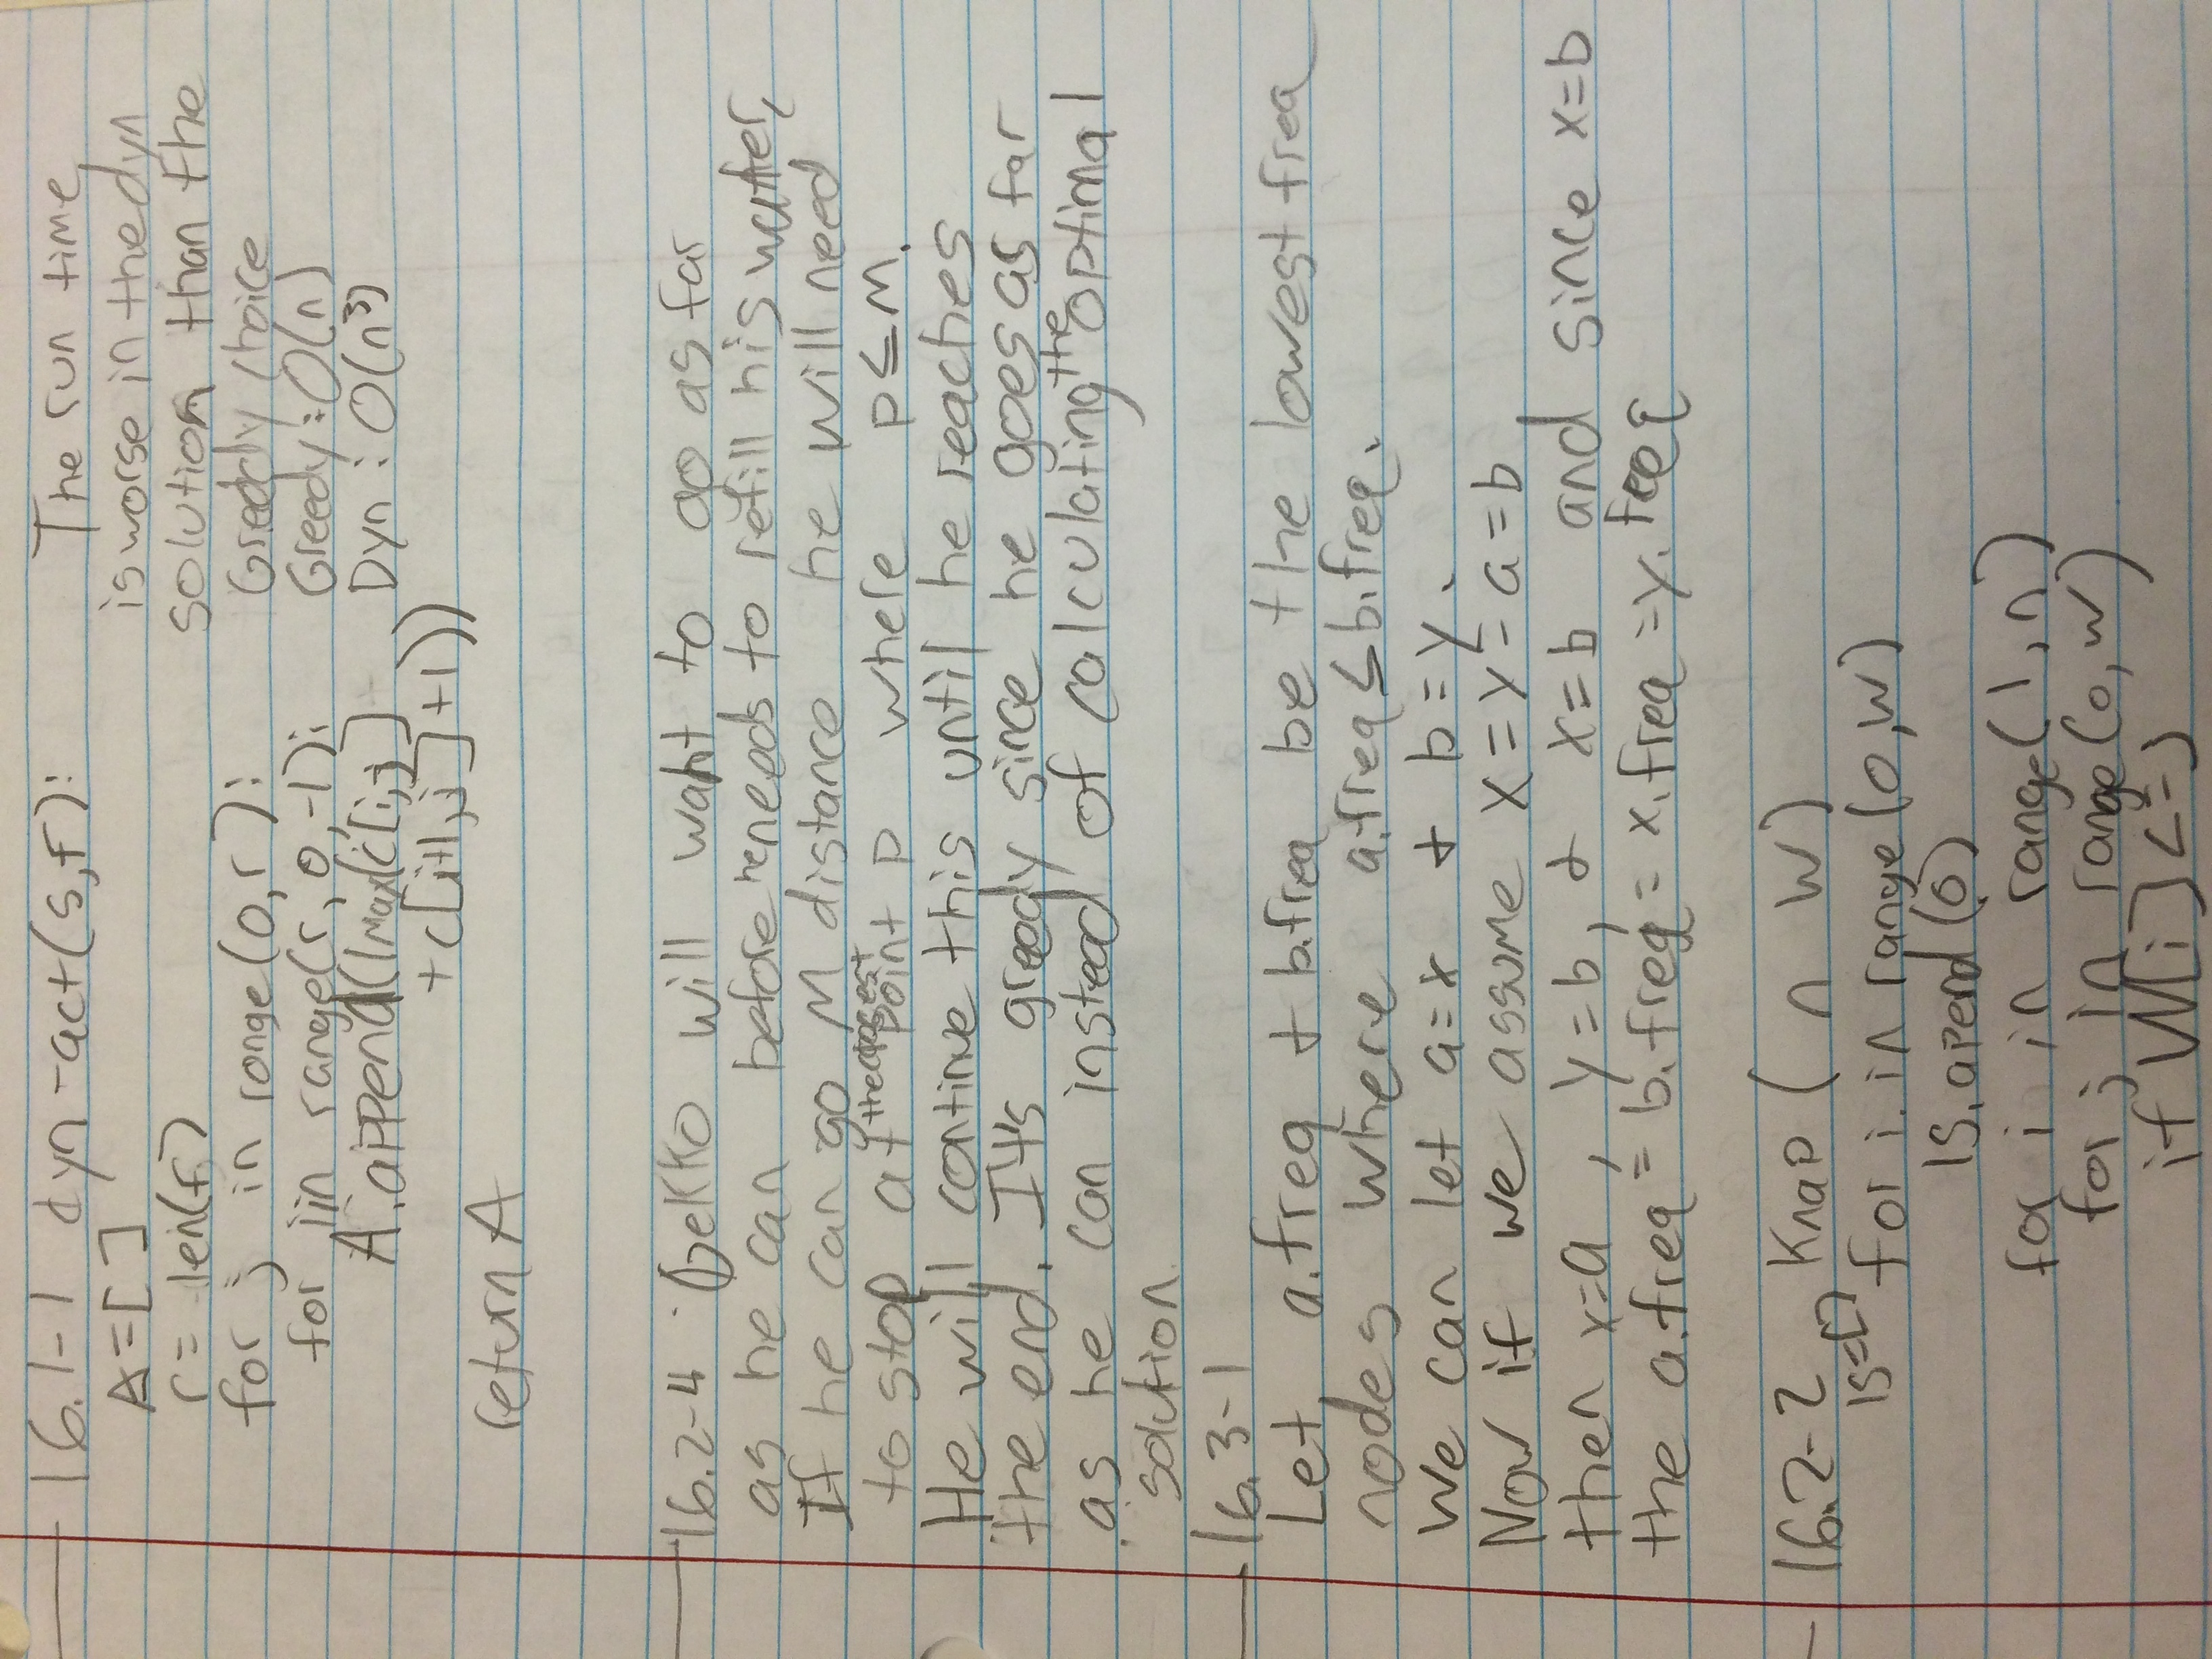 16.1-1 dyn-act(s,f):
A=[ ]
r= len(f)
for j in range(0,r):
for i in range(r, 0,-1):
A.append(max(c[i,j]
+c[i+1,j]+1))
return A
The run time
is worse in the dyn
solution than the
Greddy choice
Greedy: O(n)
Dyn: O(n³)
16.2-4 Gekko will want to go as far
as he can before he needs to refill his water,
If he can go M distance he will need
to stop at the closest point p where p≤M.
He will continue this until he reaches
the end. It's greedy since he goes as far
as he can instead of calculating the optimal
solution.
16.3-1
Let a.freq + b.freq be the lowest freq
nodes where a.freq≤b.freq.
We can let a=x + b=y.
Now if we assume x=y=a=b
then x=a, y=b, & x=b and since x=b
the a.freq = b.freq = x.freq = y.freq
16.2-2 Knap ( n W)
ls=[]
for i in range(0,W)
ls.apend(0)
for i in range(1,n)
for j in range(0,w)
if W[i]<=j